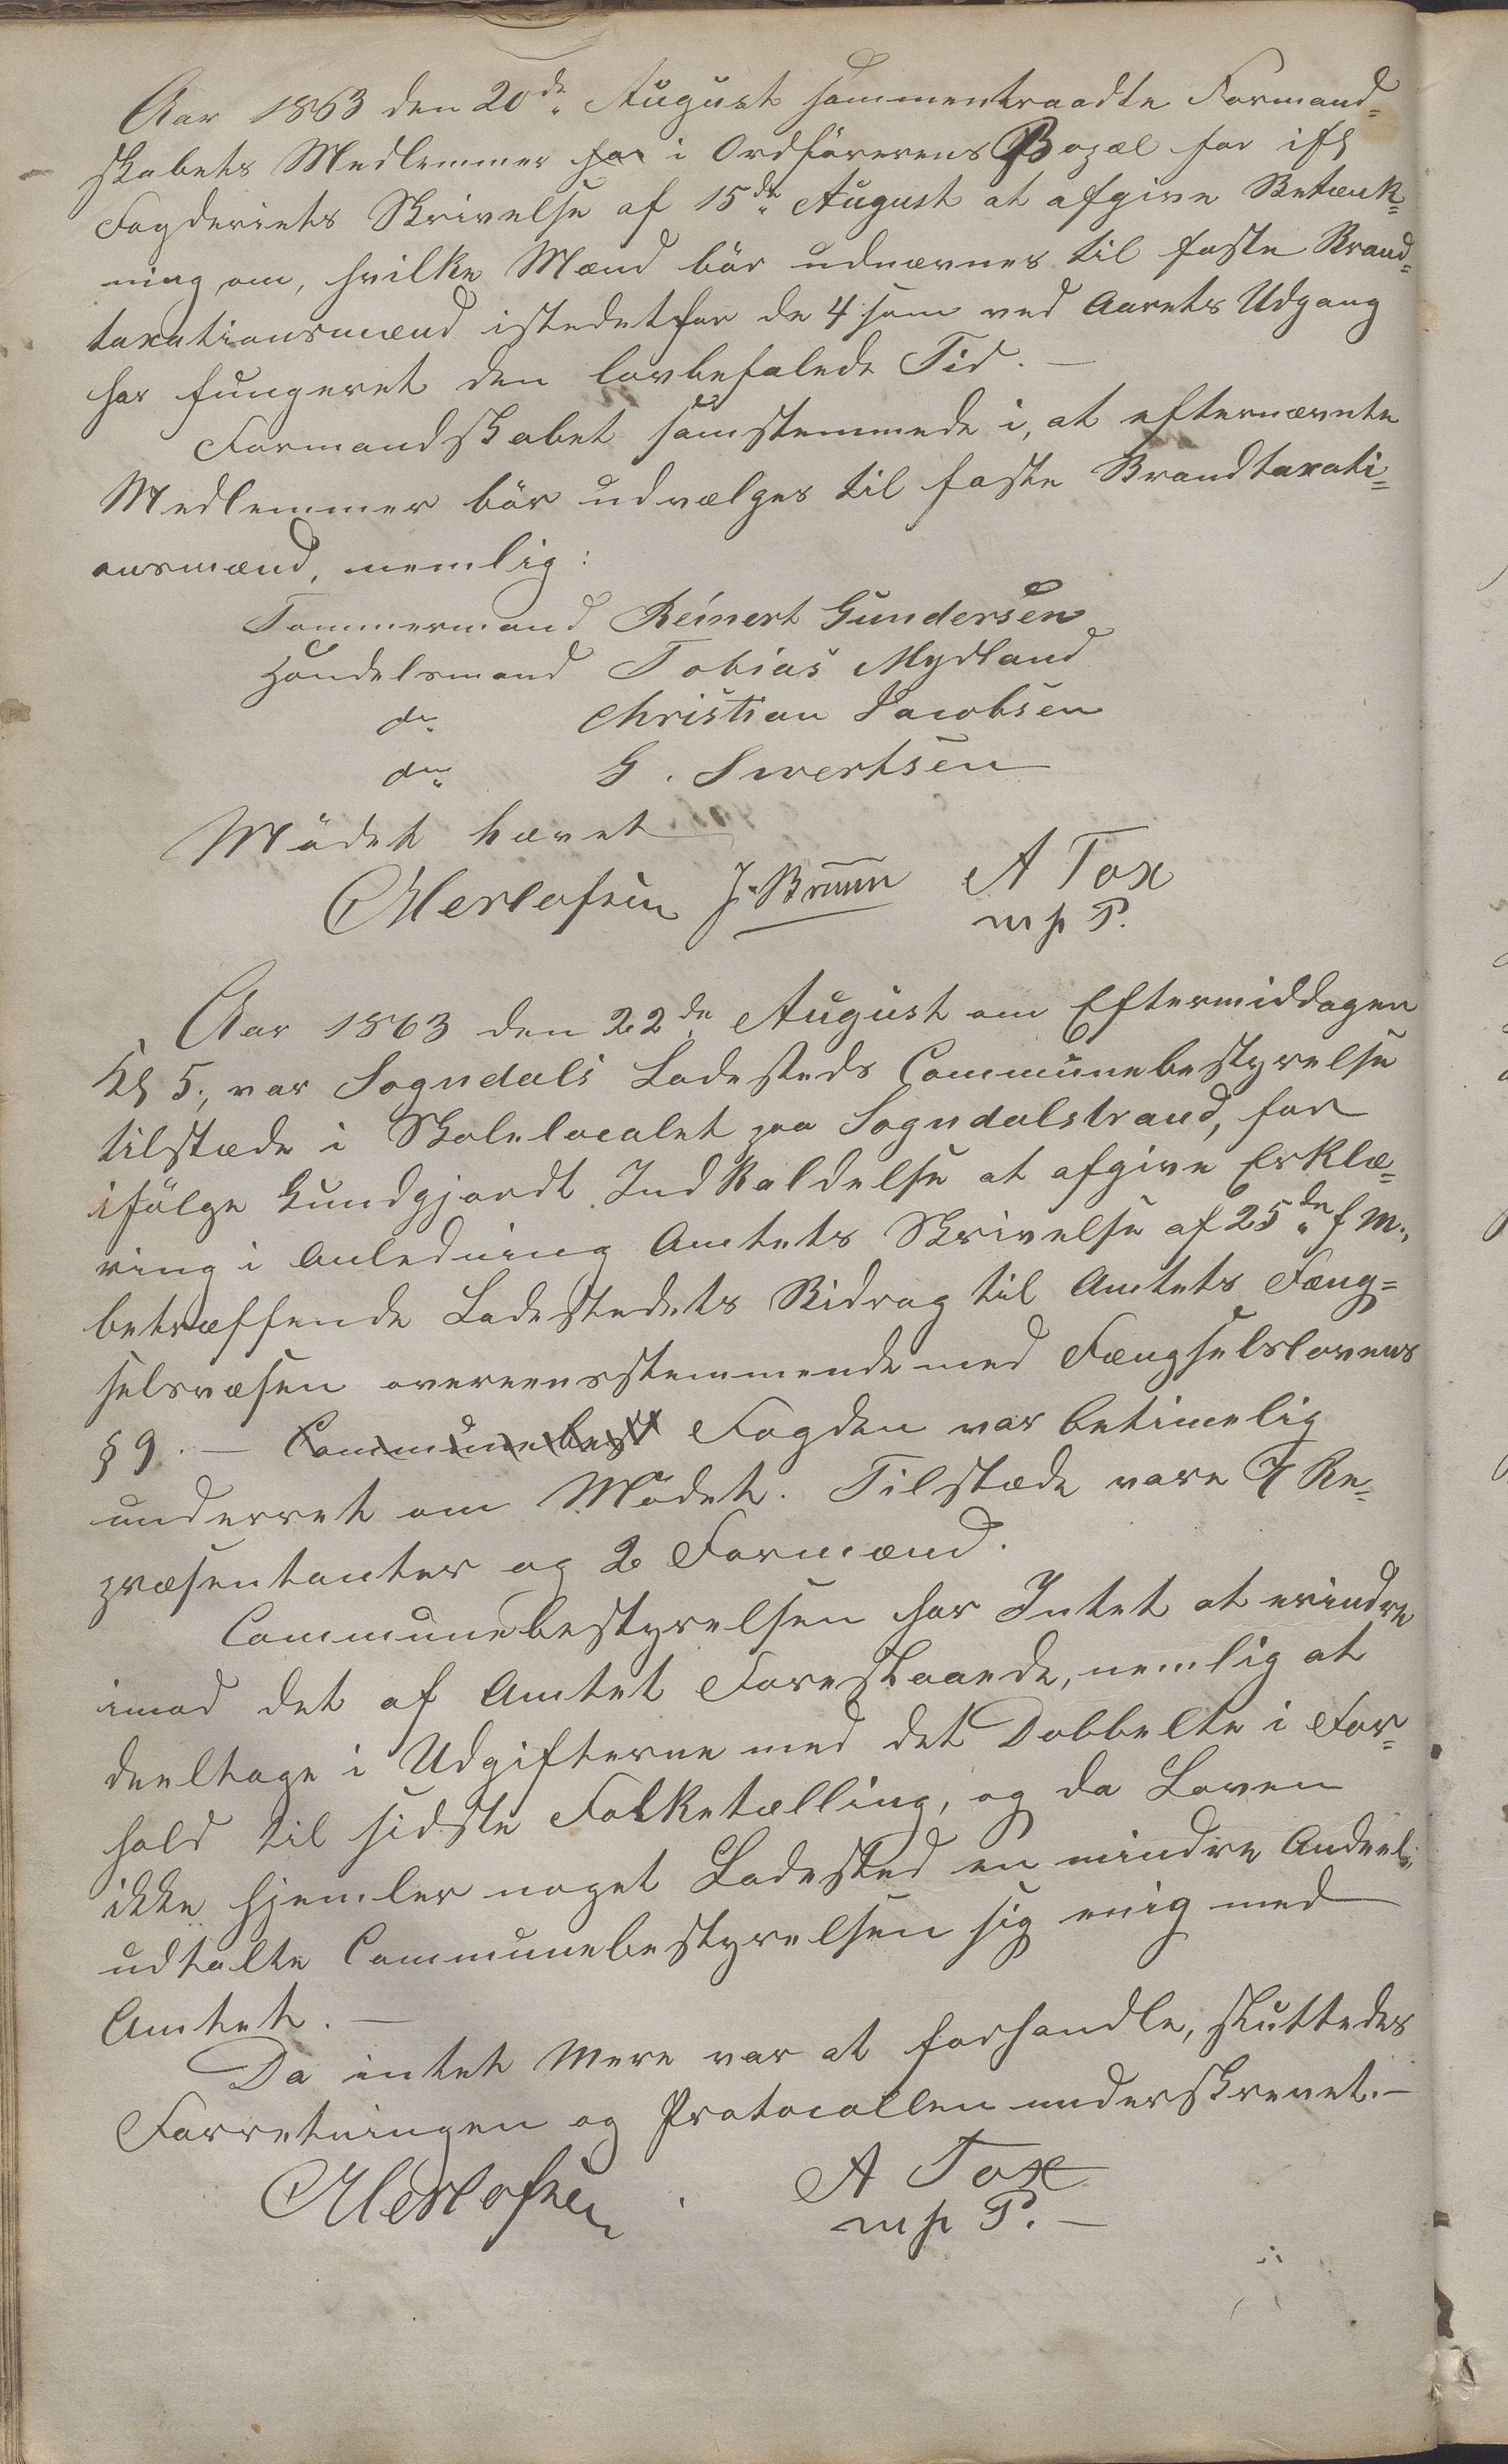 Aar 1863 den 20de August sammentraadte Formand=
skabets Medlemmer for i Ordførerens Bopæl for ifl
Fogderiets Skrivelse af 15de August at afgive Betænk=
ning om, hvilke Mænd bör udnævnes til faste Brand=
taxationsmænd istedetfor de 4 som ved Aarets Udgang
har fungeret den lovbefalede Tid. —
Formandskabet samstemmede i, at efternævnte
Medlemmer bör udvælges til faste Brandtaxati=
onsmænd, nemlig:
Tømmermand Reinert Gundersen
Handelsmand Tobias Mydland
do Christian Jacobsen
do G. Swertsen
Mödet hævet
J. Bruun A Tox
m p P.
Aar 1863 den 22de August om Eftermiddagen
Kl 5., var Sogndals Ladesteds Communebestyrelse
tilstæde i Skolelocalet paa Sogndalstrand, for
ifölge kundgjordt Indkaldelse at afgive Erklæ=
ring i Anledning Amtets Skrivelse af 25de f M.,
betræffende Ladestedets Bidrag til Amtets Fæng=
selsvæsen overeensstemmende med Fængselslovens
§ 9. — Communebest Fogden var betimelig
underret om Mödet. Tilstæde vare 7 Re=
præsentanter og 2 Formænd.
Communebestyrelsen har Intet at erindre
imod det af Amtet Foreslaaede, nemlig at
deeltage i Udgifterne med det Dobbelte i For=
hold til sidste Folketælling, og da Loven
ikke hjemler noget Ladested en mindre Andeel,
udtalte Communebestyrelsen sig enig med
Amtet. —
Da intet Mere var at forhandle, sluttedes
Forretningen og Protocollen underskrevet. —
A Tox
m p P. —